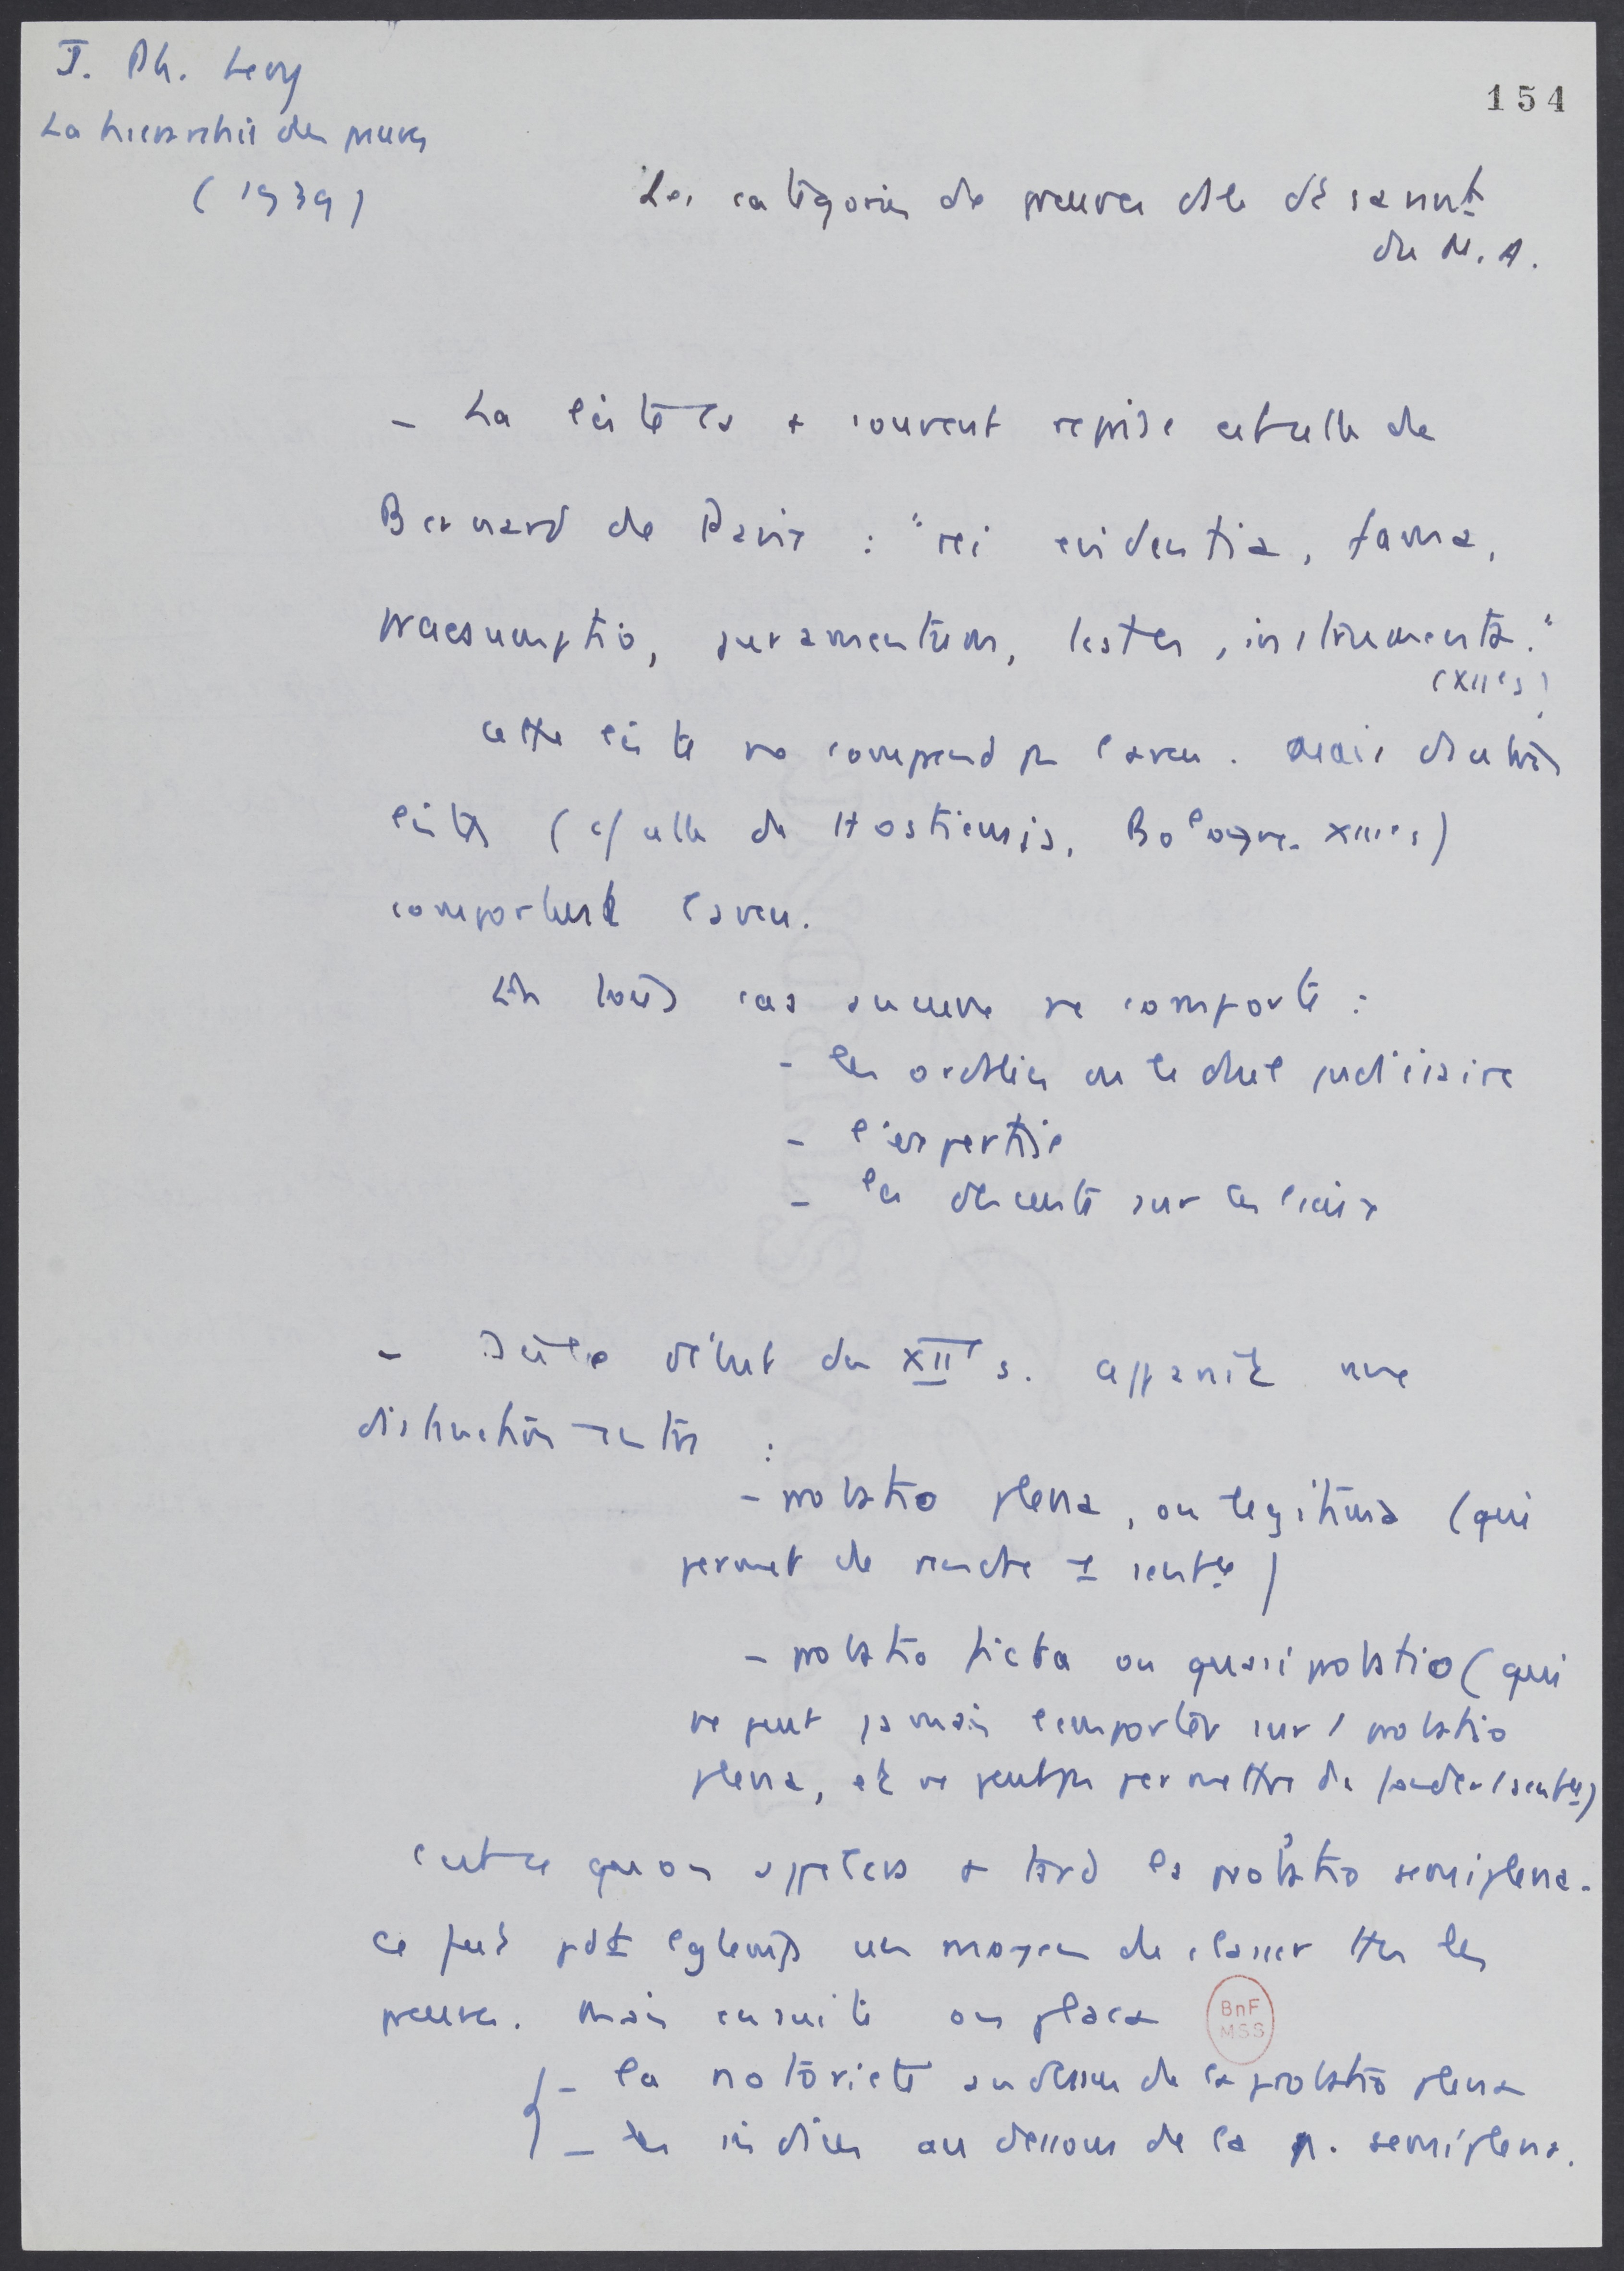 J. Ph. Levy
La hierarchie des preuves
(1939)
154
Les catégories de preuves ds le dr cannt
du M. A.
- La liste la + souvent reprise est celle de
Bernard de Pavie : "rei evidentia, fama,
praesumptio, juramentum, testes, instrumenta."
(XIIes)
Cette liste ne comprend pas l'aveu. Mais d'autres
listes (cf celle de Hostiensis, Bologne XIIIe s)
comportent l'aveu.
En tous cas aucune ne comporte :
- les ordalies ou le duel judiciaire
- l'expertise
- la descente sur les lieux
- Dès le début du XIIe s. apparait une
distinction entre :
- probatio plena, ou legitima (qui
permet de rendre 1 sentce)
- probatio ficta ou quasi probatio (qui
ne peut jamais l'emporter sur 1 probatio
plena, et ne peut pas permettre de fonder 1 sentce)
C'est ce qu'on appelera + tard la probatio semiplena.
Ce fut pdt lgtemps un moyen de classer ttes les
preuves. Mais ensuite on plaça
BnF
MSS
- la notoriété au dessus de la probatio plena
- les indices au dessous de la p. semiplena.